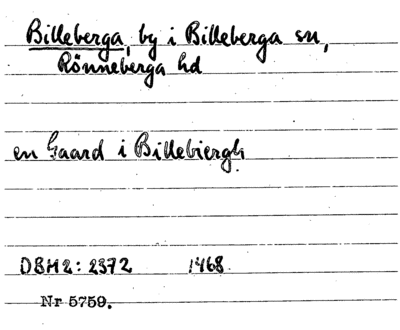 Billeberga, by i Billeberga sn,
Rönneberga hd
en Gaard i Billebiergh
DBH2: 2372 1468
Nr 5759.